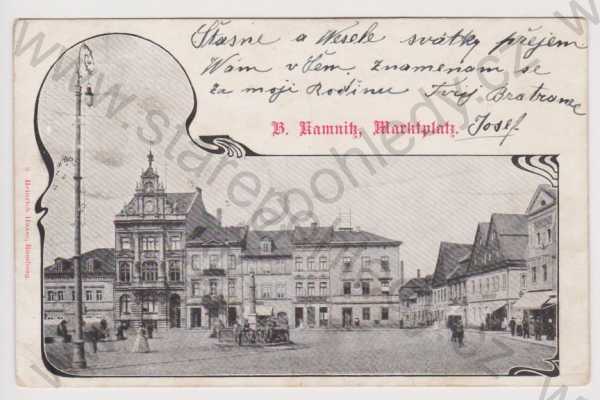 Šťasne a Wesele svátky přejem
Wám v Šem. Znamenam se
za moji Rodinu Tvůj Bratranec
Josef
B. Kamnitz, Marktplatz.
Heinrich Hesse, Rumburg.
www.starepohledy.cz